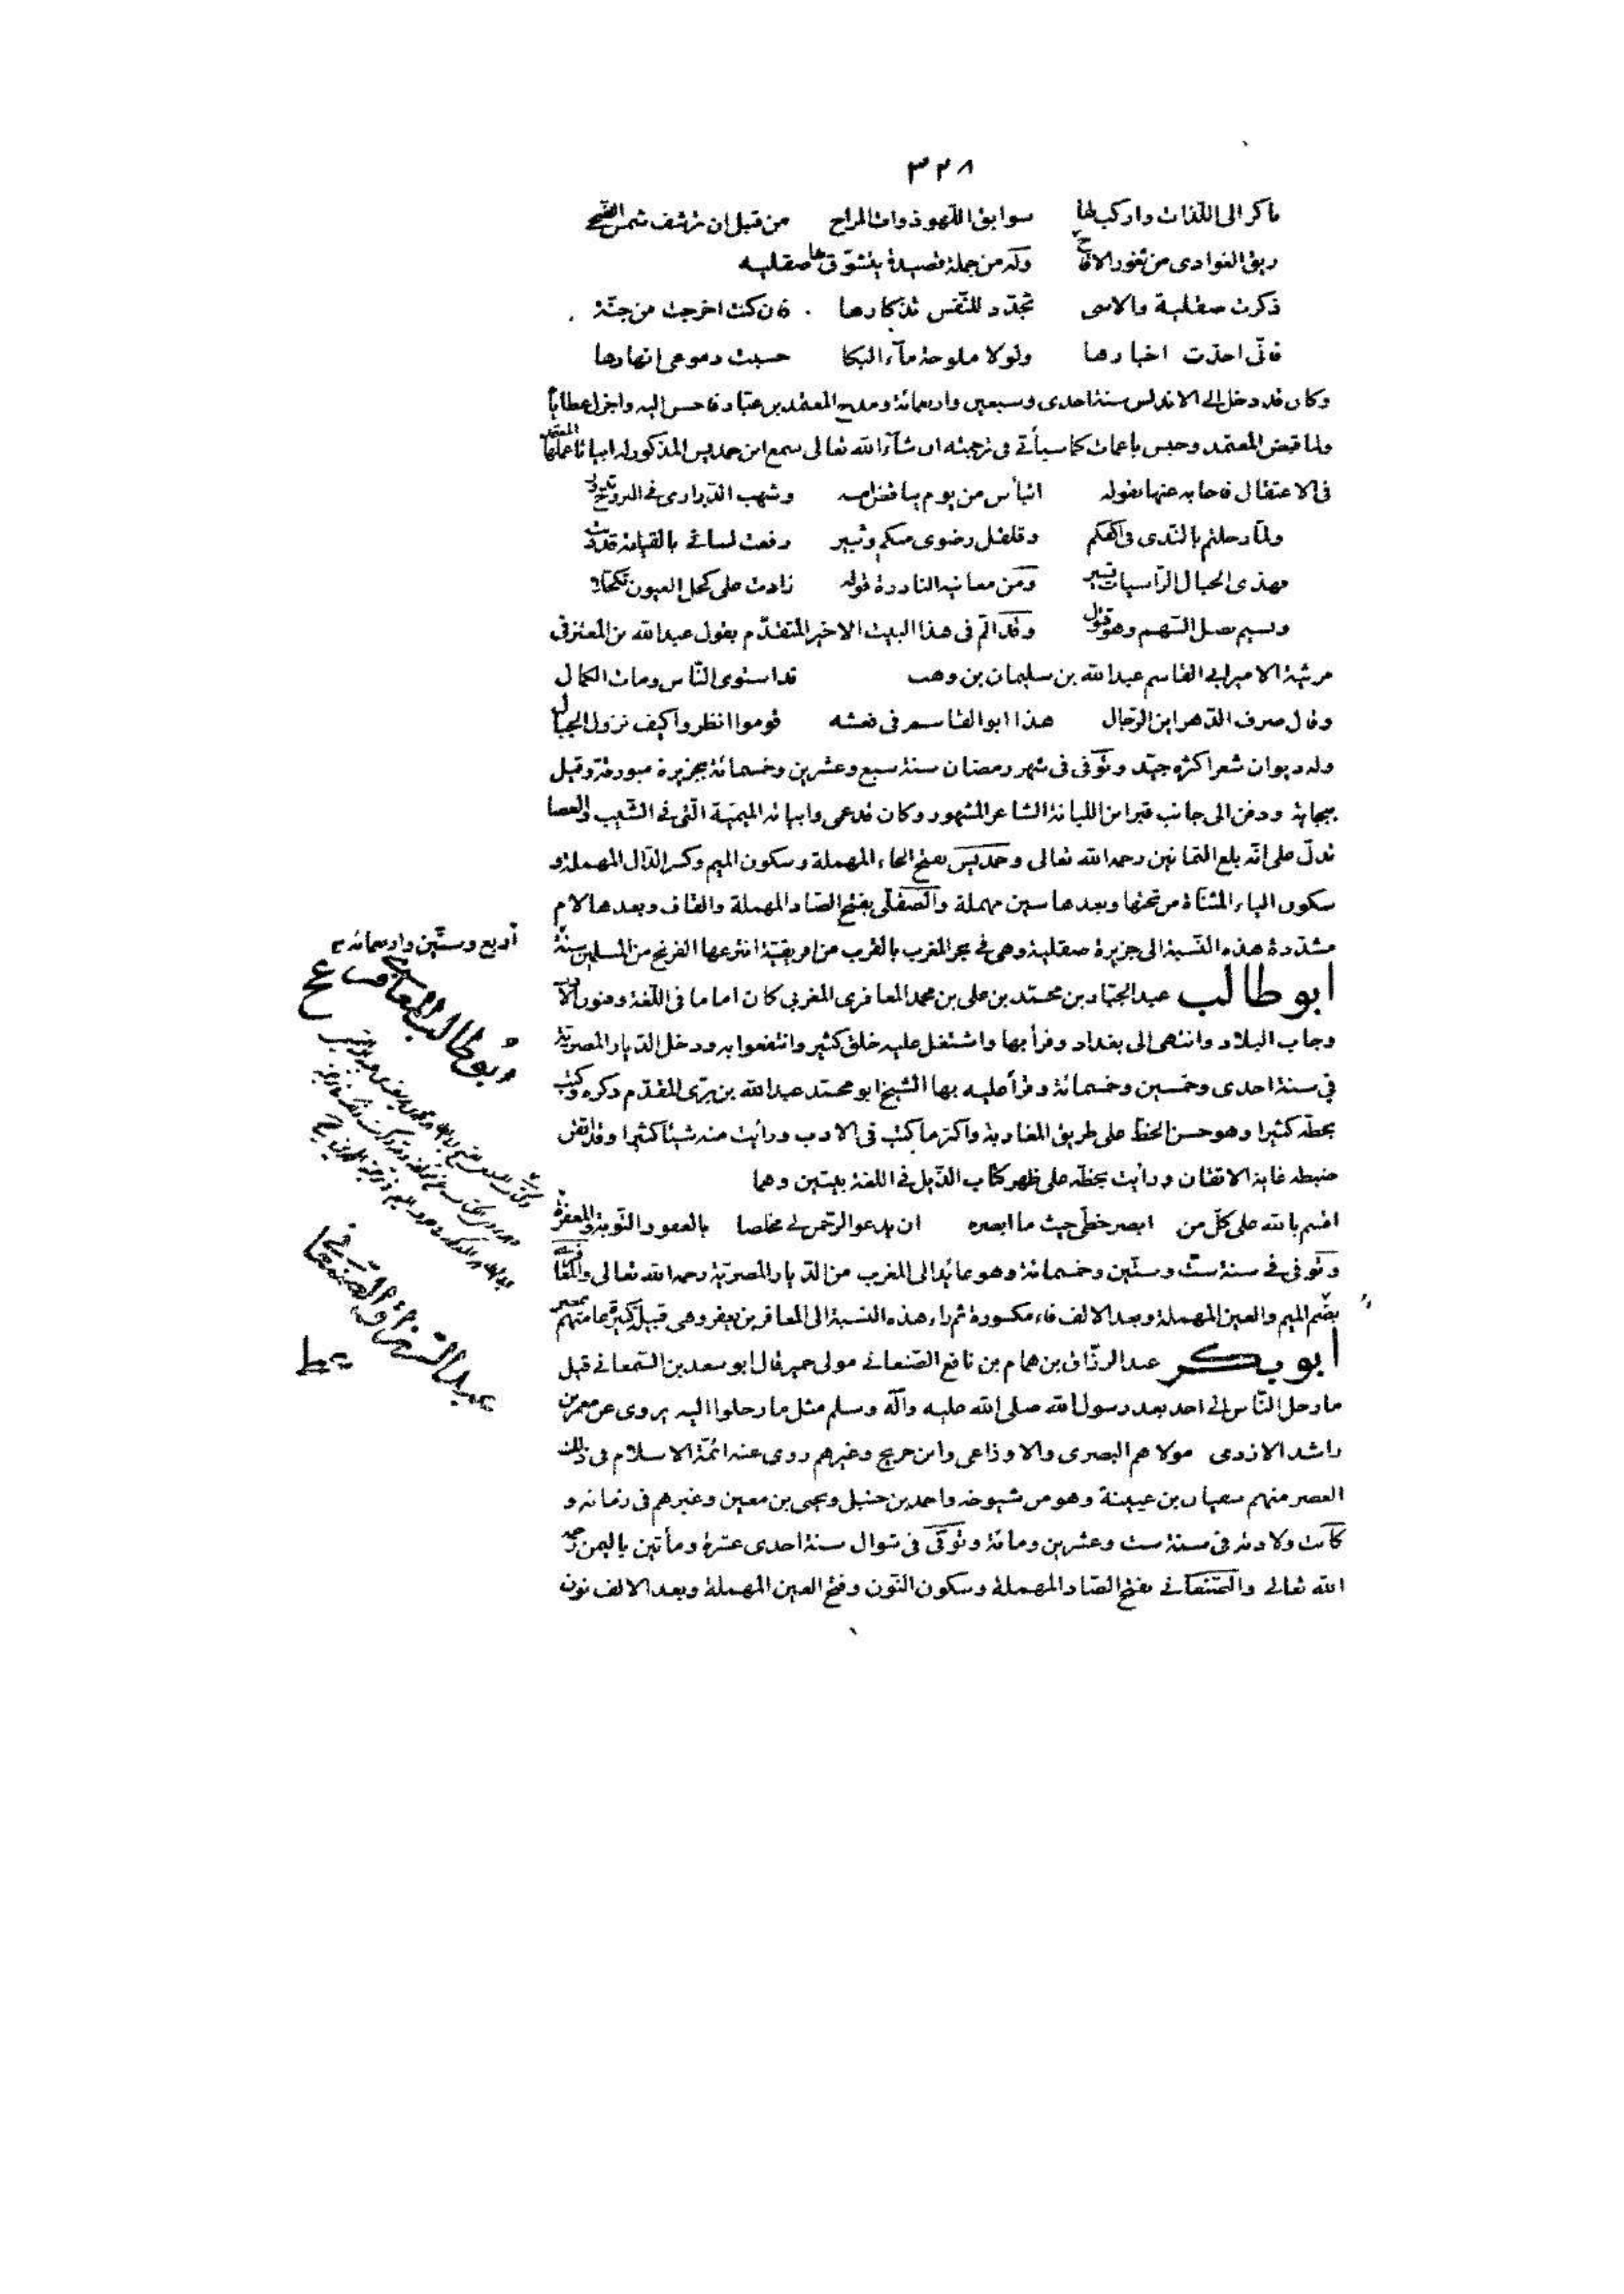 ٣٢٨
باكر الى اللذات واركب لها سوابق اللهو ذوات المراح من قبل ان ترشف شمس الضحى
ريق الغوادى من ثغور الاقاح وله من جملة قصيدة يتشوق بها صقلية
ذكرت صقلية والاسى تجدد للنفس تذكارها فان كنت اخرجت من جنة
فانى احدث اخبارها ولولا ملوحة مآء البكا حسبت دموعى انهارها
وكان قد دخل الى الاندلس سنة احدى وسبعين واربعمائة ومدح المعتمد بن عباد فاحسن اليه واجزل عطاياه
ولما قبض المعتمد وحبس باغمات كما سيأتى فى ترجمته ان شآء الله تعالى سمع ابن حمديس المذكور له ابياتا عملها المعتمد
فى الاعتقال فاجابه عنها بقوله اتيأس من يوم يناقض امسه وشهب الدرارى فى البروج تدور
ولما رحلتم بالندى فى اكفكم وقلقل رضوى منكم وثبير رفعت لسانى بالقيامة قد دنت
فهذى الجبال الراسيات تسير ومن معانيه النادرة قوله زادت على كحل العيون تكحلا
ويسم نصل السهم وهو قتول وقد الم فى هذا البيت الاخير المتقدم بقول عبد الله بن المعتز فى
مرثية الامير ابى القاسم عبد الله بن سليمان بن وهب قد استوى الناس ومات الكمال
وقال صرف الدهر اين الرجال هذا ابو القاسم فى نعشه قوموا انظروا كيف تزول الجبال
وله ديوان شعر اكثره جيد وتوفى فى شهر رمضان سنة سبع وعشرين وخمسمائة بجزيرة ميورقة وقيل
ببجاية ودفن الى جانب قبر ابن اللبانة الشاعر المشهور وكان قد عمى وابياته الميمية التى فى الشيب والعصا
تدل على انه بلغ الثمانين رحمه الله تعالى وحمديس بفتح الحاء المهملة وسكون الميم وكسر الدال المهملة و
سكون الياء المثناة من تحتها وبعدها سين مهملة والصقلى بفتح الصاد المهملة والقاف وبعدها لام
مشددة هذه النسبة الى جزيرة صقلية وهى فى بحر المغرب بالقرب من افريقية انتزعها الفرنج من المسلمين سنة
أربع وستين واربعمائة
ابو طالب عبد الجبار بن محمد بن على بن محمد المعافرى المغربى كان اماما فى اللغة وفنون الادب
وجاب البلاد وانتهى الى بغداد وقرأ بها واشتغل عليه خلق كثير وانتفعوا به ودخل الديار المصرية
فى سنة احدى وخمسين وخمسمائة وقرأ عليه بها الشيخ ابو محمد عبد الله بن برى المقدم ذكره وكتب
بخطه كثيرا وهو حسن الخط على طريق المغاربة واكثر ما كتب فى الادب ورأيت منه شيئا كثيرا وقد اتقن
ضبطه غاية الاتقان ورأيت بخطه على ظهر كتاب الذيل فى اللغة بيتين وهما
اقسم بالله على كل من ابصر خطى حيث ما ابصره ان يدعو الرحمن لى مخلصا بالعفو والتوبة والمغفرة
وتوفى فى سنة ست وستين وخمسمائة وهو عائد الى المغرب من الديار المصرية رحمه الله تعالى والمعافرى
بضم الميم والعين المهملة وبعد الالف فاء مكسورة ثم راء هذه النسبة الى المعافر بن يعفر وهى قبيل كبير عامتهم بمصر
ابو بكر عبد الرزاق بن همام بن نافع الصنعانى مولى حمير قال ابو سعد بن السمعانى قيل
ما رحل الناس الى احد بعد رسول الله صلى الله عليه وآله وسلم مثل ما رحلوا اليه يروى عن معمر بن
راشد الازدى مولاهم البصرى والاوزاعى وابن جريج وغيرهم روى عنه ائمة الاسلام فى ذلك
العصر منهم سفيان بن عيينة وهو من شيوخه واحمد بن حنبل ويحيى بن معين وغيرهم فى زمانه و
كانت ولادته فى سنة ست وعشرين ومائة وتوفى فى شوال سنة احدى عشرة ومأتين باليمن رحمه
الله تعالى والصنعانى بفتح الصاد المهملة وسكون النون وفتح العين المهملة وبعد الالف نون
ابو طالب المعافرى
عبد الرزاق الصنعانى